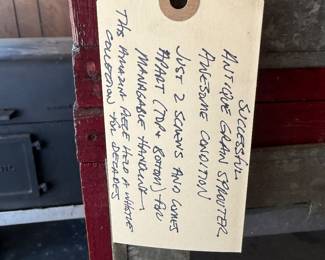 SUCCESSFUL
ANTIQUE GRAIN SPROUTER
AWESOME CONDITION
JUST 2 SCREWS AND COMES
APART (TOP & BOTTOM) FOR
MANAGABLE HANDLING.
THIS AMAZING PIECE HELD A WHISTLE
COLLECTION FOR DECADES